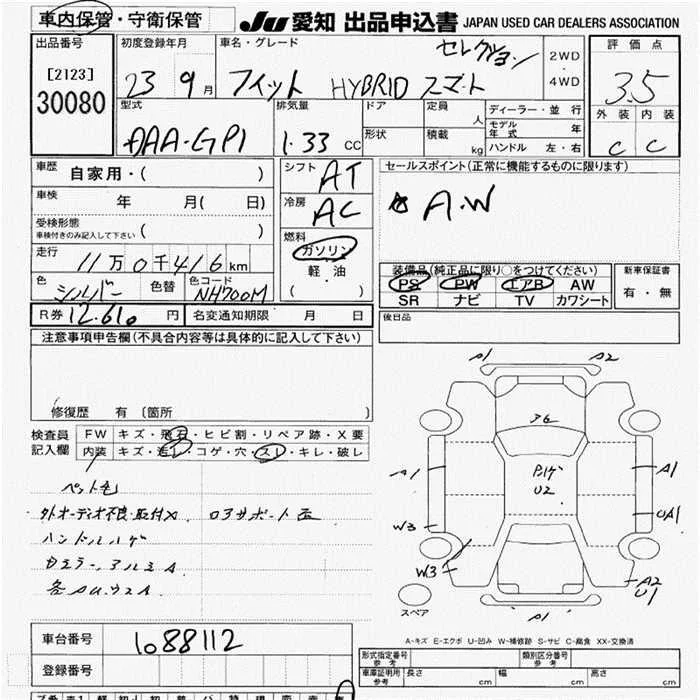 車内保管・守衛保管
JU 愛知 出品申込書 JAPAN USED CAR DEALERS ASSOCIATION
出品番号
[2123]
30080
初度登録年月
23 9月
車名・グレード
フィット HYBRID スマート
セレクション
2WD
・
4WD
評価点
3.5
外装 内装
C C
型式
DAA-GP1
排気量
1.33 CC
ドア
形状
定員 人
積載 kg
ディーラー・並行
モデル年式 年
ハンドル 左・右
車歴
自家用・( )
車検 年 月( 日)
受検形態
車検付きのみ記入して下さい ( )
走行
11万0千416km
色 シルバー 色替 色コード NH700M
R券 12.610 円 名変通知期限 月 日
シフト AT
冷房 AC
燃料
ガソリン
軽油
( )
セールスポイント(正常に機能するものに限ります)
A.W
装備品(純正品に限り○をつけてください)
PS PW エアB AW
SR ナビ TV カワシート
新車保証書
有・無
後日品
注意事項申告欄(不具合内容等は具体的に記入して下さい)
修復歴 有 (箇所 )
検査員
記入欄
FW キズ・飛石・ヒビ割・リペア跡・X要
内装 キズ・汚れ・コゲ・穴・スレ・キレ・破レ
外オーディオ不良・取付X ロアサポート
ハンドルハゲ
A1 A2
36
A1 A1
U2
UA1
W3
W3
A2
U1
スペア
A1
A-キズ E-エクボ U-凹み W-補修跡 S-サビ C-腐食 XX-交換済
車台番号 1088112
登録番号
形式指定番号
参考
類別区分番号
参考
車庫証明用
参考
長さ cm 幅 cm 高さ cm